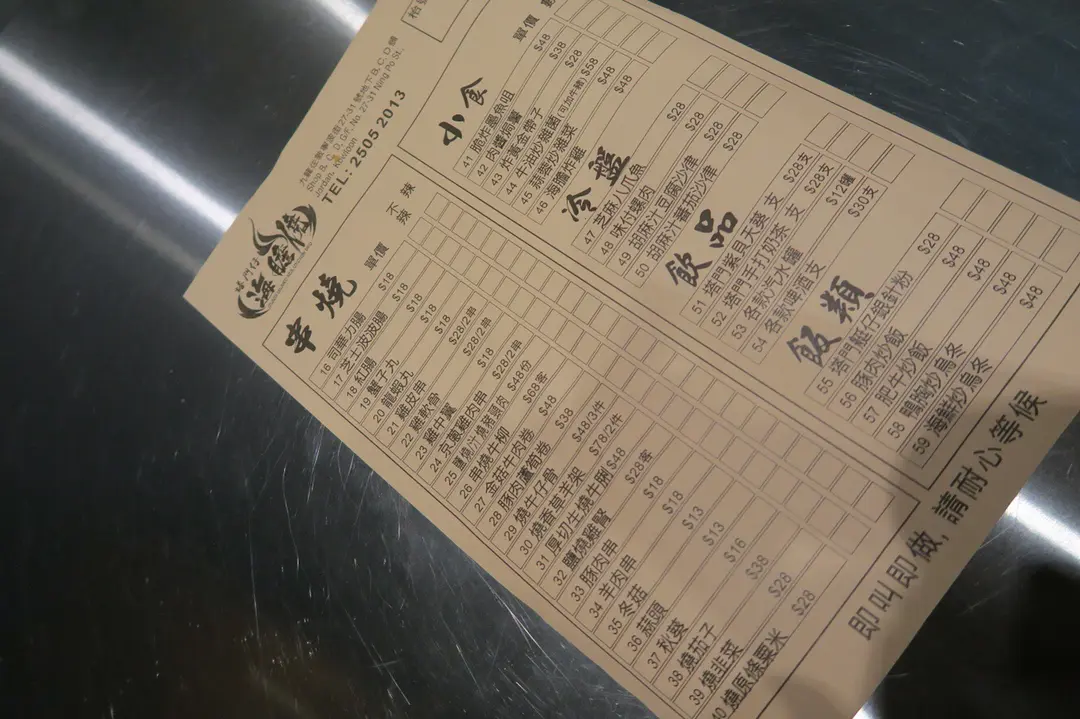 塔門仔
海膽燒
九龍佐敦寧波街27-31號地下B, C, D舖
Shop B, C, D, G/F, No. 27-31 Ning Po St.,
Jordan, Kowloon
TEL: 2505 2013
串燒 單價 不辣 辣
16 司華力腸 $18
17 芝士波波腸 $18
18 紅腸 $18
19 蟹子丸 $18
20 龍蝦丸 $18
21 雞皮串 $28/2串
22 雞軟骨 $28/2串
23 雞中翼 $18
24 京蔥雞肉串 $28/2串
25 鹽燒汁燒豬頸肉 $48份
26 串燒牛柳 $68客
27 金菇牛肉卷 $48
28 豚肉蘆荀卷 $38
29 燒牛仔骨 $48/3件
30 燒香草羊架 $78/2件
31 厚切生燒牛脷 $48
32 鹽燒雞腎 $28客
33 豚肉串 $18
34 羊肉串 $18
35 冬菇 $13
36 蒜頭 $13
37 秋葵 $16
38 燒茄子 $38
39 燒韭菜 $28
40 燒原條粟米 $28
小食 單價
41 脆炸墨魚咀 $48
42 肉醬焗薯 $38
43 炸黃金帶子 $28
44 牛油炒雜菌(可加牛豬) $58
45 蒜蓉炒雜菜 $48
46 海膽炸雞 $48
冷盤
47 芝麻八爪魚 $28
48 味付螺肉 $28
49 胡麻汁豆腐沙律 $28
50 胡麻汁番茄沙律 $28
飲品
51 塔門紫貝天葵 支 $28支
52 塔門手打奶茶 支 $28支
53 各款汽水 罐 $12罐
54 各款啤酒 支 $30支
飯類
55 塔門艇仔銀針粉 $28
56 豚肉炒飯 $48
57 肥牛炒飯 $48
58 鴨胸炒烏冬 $48
59 海鮮炒烏冬 $48
即叫即做, 請耐心等候